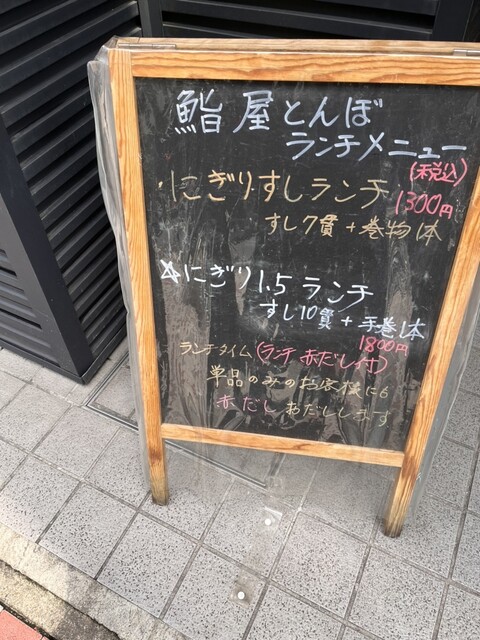 鮨屋とんぼ
ランチメニュー
(税込)
・にぎりすしランチ 1300円
すし7貫+巻物1本
☆にぎり1.5ランチ
すし10貫+手巻1本
1800円
ランチタイム(ランチ赤だし付)
単品のみのお客様にも
赤だしおだしします